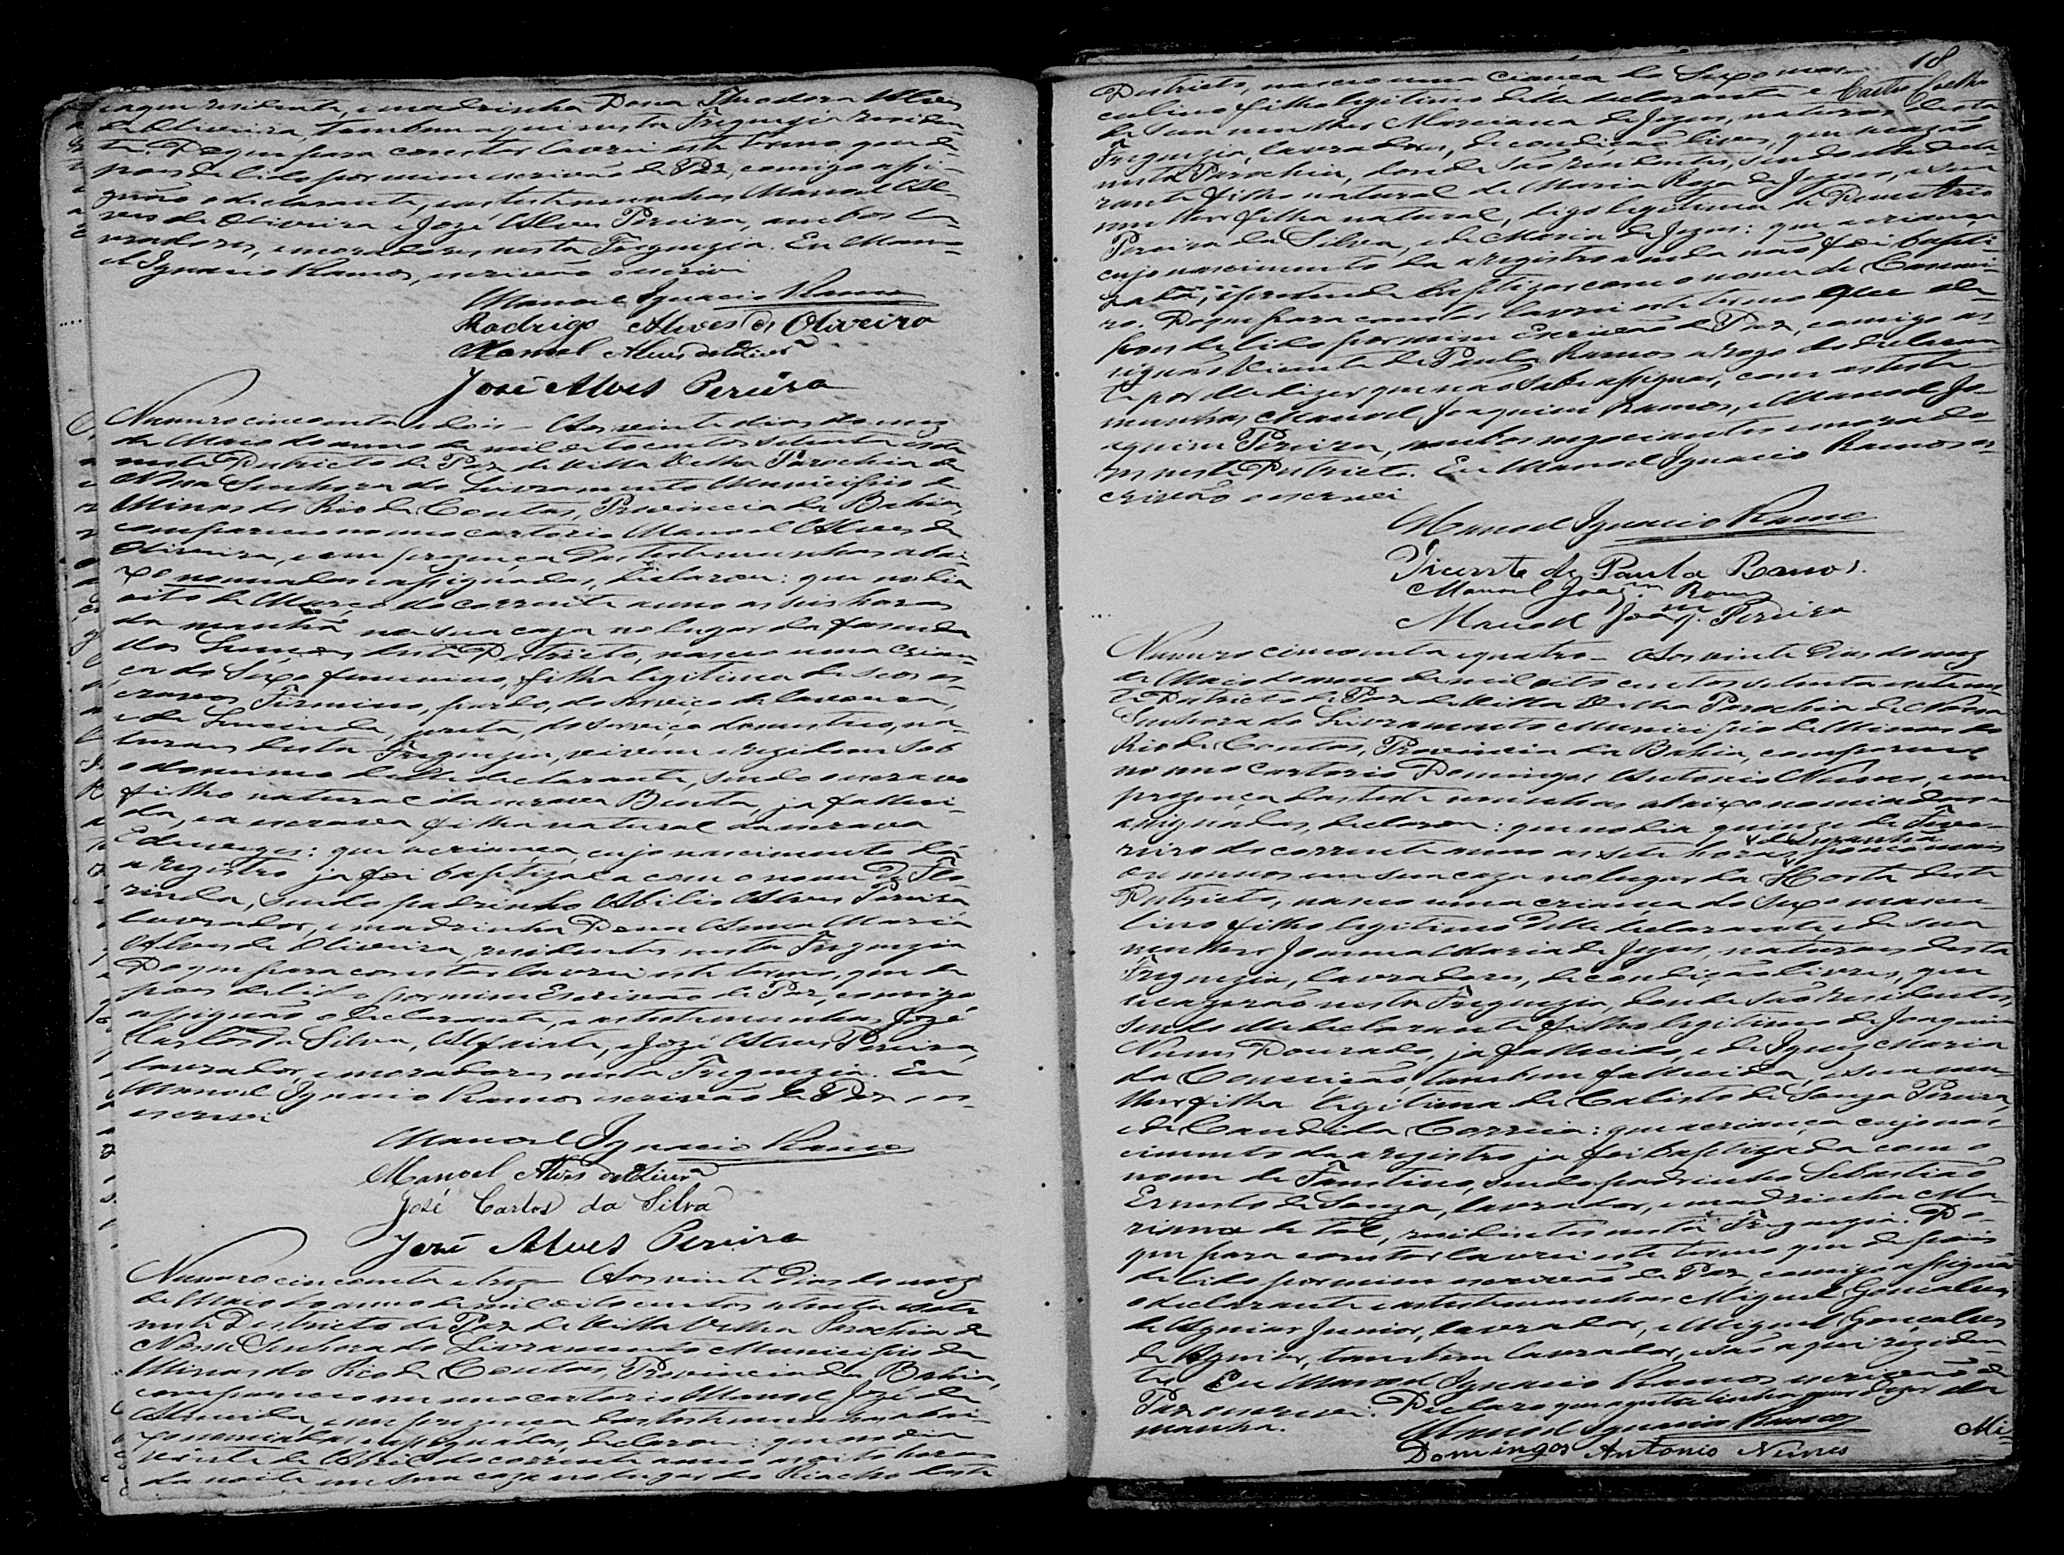 e aqui residente, e madrinha Dona Theodora Alves
de Oliveira, tambem aqui nesta Freguezia residen-
te. Do que para constar lavrei este termo, que de-
pois de lido por mim escrivão de Paz, comigo assi-
gnão o declarante, e as testemunhas Manoel Al-
ves de Oliveira e José Alves Pereira, ambos la-
vradores, e moradores nesta Freguezia. Eu Mano-
el Ignacio Ramos, escrivão o escrevi
Manoel Ignacio Ramos
Rodrigo Alves de Oliveira
Manoel Alves de Olivrª
José Alves Pereira
Numero cincoenta e dois - Aos vinte dias do mez
de Maio do anno de mil oito centos setenta e sete
neste Districto de Paz de Villa Velha Parochia de
Nossa Senhora do Livramento Municipio de
Minas do Rio de Contas, Provincia da Bahia,
compareceo no meo cartorio Manoel Alves de
Oliveira, e em prezença das testemunhas abai-
xo nomeadas e assignadas, declarou: que no dia
oito de Março do corrente anno as seis horas
da manhã na sua caza no lugar da fazenda
dos deste Districto, nasceo uma crian-
ça do Sexo feminino, filha legitima de seos es-
cravos Firmino, pardo, do serviço de lavoura,
e de Lucinda, preta, do serviço domestico, na-
turaes desta Freguezia, vivem e rezidem sob
o dominio delle declarante, sendo o escravo
filho natural da escrava Benta, ja falleci-
da, e a escrava filha natural da escrava
Eduviges: que a criança, cujo nascimento dá
a registro ja foi baptizada com o nome de Flo-
rinda, sendo padrinho Abilio Alves Pereira
lavrador, e madrinha Dona Anna Maria
Alves de Oliveira, residentes nesta Freguezia
Do que para constar lavrei este termo, que de-
pois de lido por mim Escrivão de Paz, comigo
assignão o declarante, e as testemunhas José
Carlos da Silva, Alfaiate, e José Alves Pereira,
lavrador, e moradores nesta Freguezia. Eu
Manoel Ignacio Ramos escrivão de Paz o es-
crevi
Manoel Ignacio Ramos
Manoel Alves de Olivrª
José Carlos da Silva
José Alves Pereira
Numero cincoenta e trez - Aos vinte dias do mez
de Maio do anno de mil oito centos setenta e sete
neste Districto de Paz de Villa Velha Parochia de
Nossa Senhora do Livramento Municipio de
Minas do Rio de Contas, Provincia da Bahia,
compareceo no meo cartorio Manoel José de
Almeida, e em prezença das testemunhas abai-
xo nomeadas e assignadas, declarou: que no dia
vinte de Abril do corrente anno as oito horas
da noite em sua caza no lugar do Riacho deste
18
Districto, nasceo uma criança do Sexo mas-
culino filho legitimo delle declarante e Castro Coelho
de sua mulher Marciana de Jezus, naturaes desta
Freguezia, lavradores, de condição livres, que se cazarão
nesta Parochia, donde são rezidentes, sendo elle decla-
rante filho natural de Maria Roza de Jezus, e sua
mulher filha natural, digo legitima de Demetrio
Pereira da Silva, e de Maria de Jezus: que a criança,
cujo nascimento dá a registro ainda não foi bapti-
zada, e pretende baptizar com o nome de Cammi-
ro. Do que para constar lavrei este termo que de-
pois de lido por mim Escrivão de Paz, comigo as-
signão Vicente de Paula Ramos a rogo do declaran-
te por elle dizer que não sabe assignar, com as teste-
munhas Manoel Joaquim Ramos, e Manoel Jo-
aquim Pereira, ambos negociantes e morado-
res neste Districto. Eu Manoel Ignacio Ramos es-
crivão o escrevi
Manoel Ignacio Ramos
Vicente de Paula Ramos.
Manoel Joaqm Ramos
Manoel Joaqm Pereira
Numero cincoenta e quatro - Aos vinte dias do mez
de Maio do anno de mil oito centos setenta e sete nes-
te Districto de Paz de Villa Velha Parochia de Nossa
Senhora do Livramento Municipio de Minas do
Rio de Contas, Provincia da Bahia, compareceo
no meo cartorio Domingos Antonio Nunes, e em
prezença das testemunhas abaixo nomeadas e
assignadas, declarou: que no dia quinze de Feve-
reiro do corrente anno as sete horas da manhã pouco mais
ou menos em sua caza no lugar da Horta deste
Districto, nasceo uma criança do Sexo mascu-
lino filho legitimo delle declarante e de sua
mulher Joanna Maria de Jezus, naturaes desta
Freguezia, lavradores, de condição livres, que
se cazarão nesta Freguezia, donde são residentes,
sendo elle declarante filho legitimo de Joaquim
Nunes Dourado, ja fallecido, e de Ignez Maria
da Conceição tambem fallecida, e sua mu-
lher filha legitima de Calisto de Souza Pereira,
e de Candida Correia: que a criança cujo nas-
cimento dá a registro ja foi baptizada com o
nome de Faustino, sendo padrinho Sebastião
Ernesto de Souza, lavrador, e madrinha Ma-
rianna de tal, rezidentes nesta Freguezia. Do
que para constar lavrei este termo que depois
de lido por mim escrivão de Paz, comigo assignão
o declarante e as testemunhas Miguel Gonçalves
de Aguiar Junior, lavrador, e Miguel Gonçalves
de Aguiar, tambem lavrador, e são aqui rezidin-
tes. Eu Manoel Ignacio Ramos escrivão de
Paz o escrevi. Declaro que a entrelinha quer dizer da
manhã.
Manoel Ignacio Ramos
Domingos Antonio Nunes
Mi-